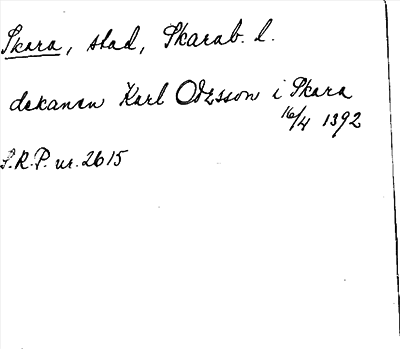 Skara, stad, Skarab. l.
dekanen Karl Odzsson i Skara
16/4 1392
S.R.P. nr. 2615